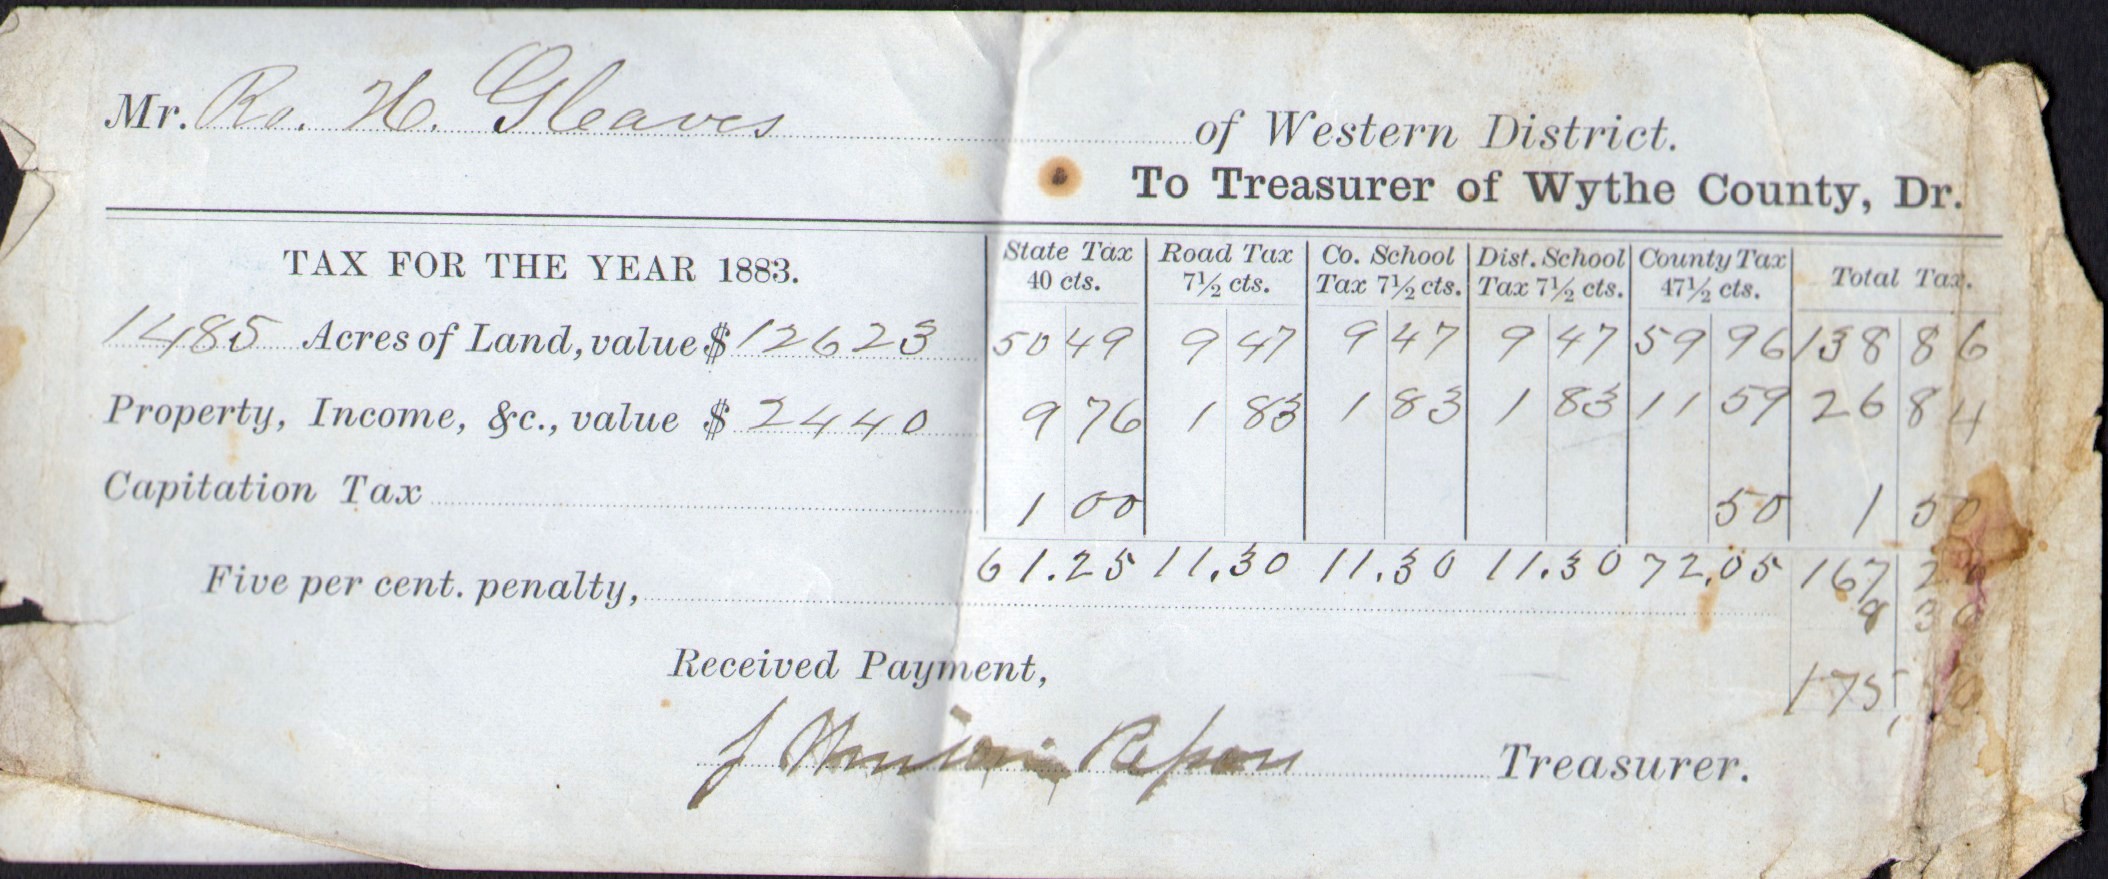 Mr. Ro. H. Gleaves of Western District.
To Treasurer of Wythe County, Dr.
TAX FOR THE YEAR 1883. State Tax 40 cts. Road Tax 7½ cts. Co. School Tax 7½ cts. Dist. School Tax 7½ cts. County Tax 47½ cts. Total Tax.
1485 Acres of Land, value $ 12623 50 49 9 47 9 47 9 47 59 96 138 86
Property, Income, &c., value $ 2440 9 76 1 83 1 83 1 83 11 59 26 84
Capitation Tax 1 00 50 1 50
61.25 11.30 11.30 11.30 72.05 167 20
Five per cent. penalty, 8 36
Received Payment, 175
J Repass Treasurer.